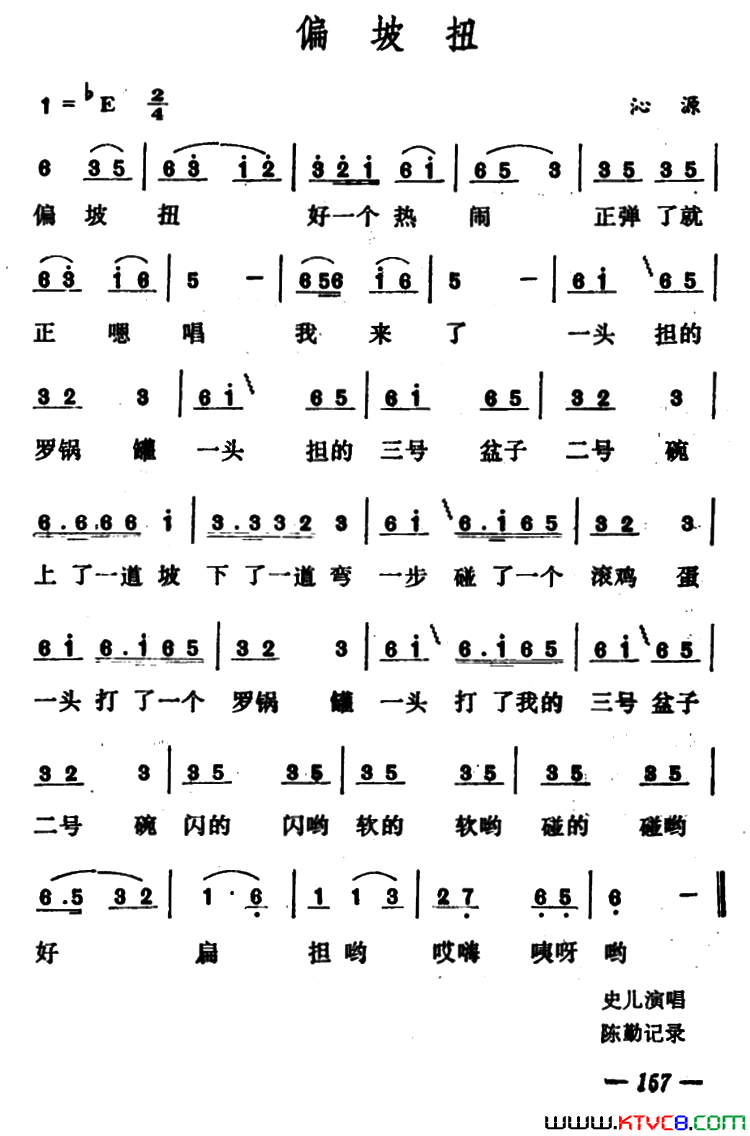 偏坡扭
1=♭E 2/4 沁源
6 35 | 63 12 | 321 61 | 65 3 | 35 35 |
偏 坡 扭 好一个热 闹 正弹了就
63 16 | 5 – | 656 16 | 5 – | 61 65 |
正 嗯 唱 我 来 了 一头 担的
32 3 | 61 65 | 61 65 | 32 3 |
罗锅 罐 一头 担的 三号 盆子 二号 碗
6.666 1 | 3.332 3 | 61 6.165 | 32 3 |
上了一道坡 下了一道弯 一步碰了一个 滚鸡 蛋
61 6.165 | 32 3 | 61 6.165 | 61 65 |
一头打了一个 罗锅 罐 一头 打了我的 三号盆子
32 3 | 35 35 | 35 35 | 35 35 |
二号 碗 闪的 闪哟 软的 软哟 碰的 碰哟
6.5 32 | 1· 6 | 1 13 | 27 65 | 6 – ‖
好 扁 担哟 哎嗨 咦呀 哟
史儿演唱
陈勤记录
— 157 —
www.KTVC8.com